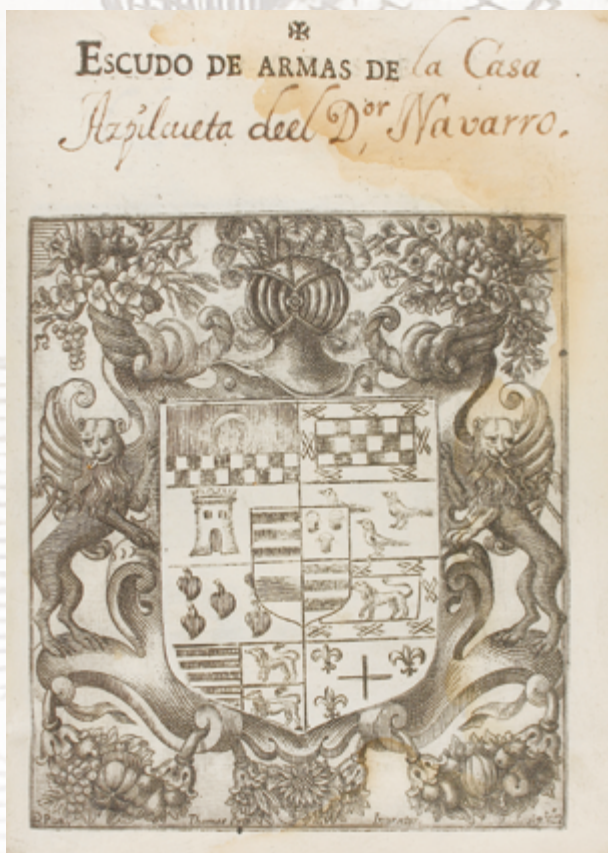 ESCUDO DE ARMAS DE la Casa
Azpilcueta deel D.or Navarro.
Thomas